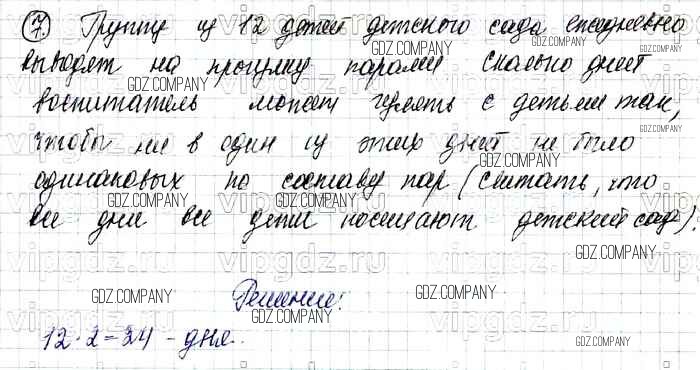 7. Группу из 12 детей детского сада ежедневно
выводят на прогулку парами Сколько дней
воспитатель может гулять с детьми так,
чтобы ни в один из этих дней не было
одинаковых по составу пар (считать, что
все дни все дети посещают детский сад)?
Решение:
12·2=24 - дня.
GDZ.COMPANY
GDZ.COMPANY
GDZ.COMPANY
GDZ.COMPANY
GDZ.COMPANY
GDZ.COMPANY
GDZ.COMPANY
GDZ.COMPANY
GDZ.COMPANY
GDZ.COMPANY
GDZ.COMPANY
GDZ.COMPANY
GDZ.COMPANY
vipgdz.ru
vipgdz.ru
vipgdz.ru